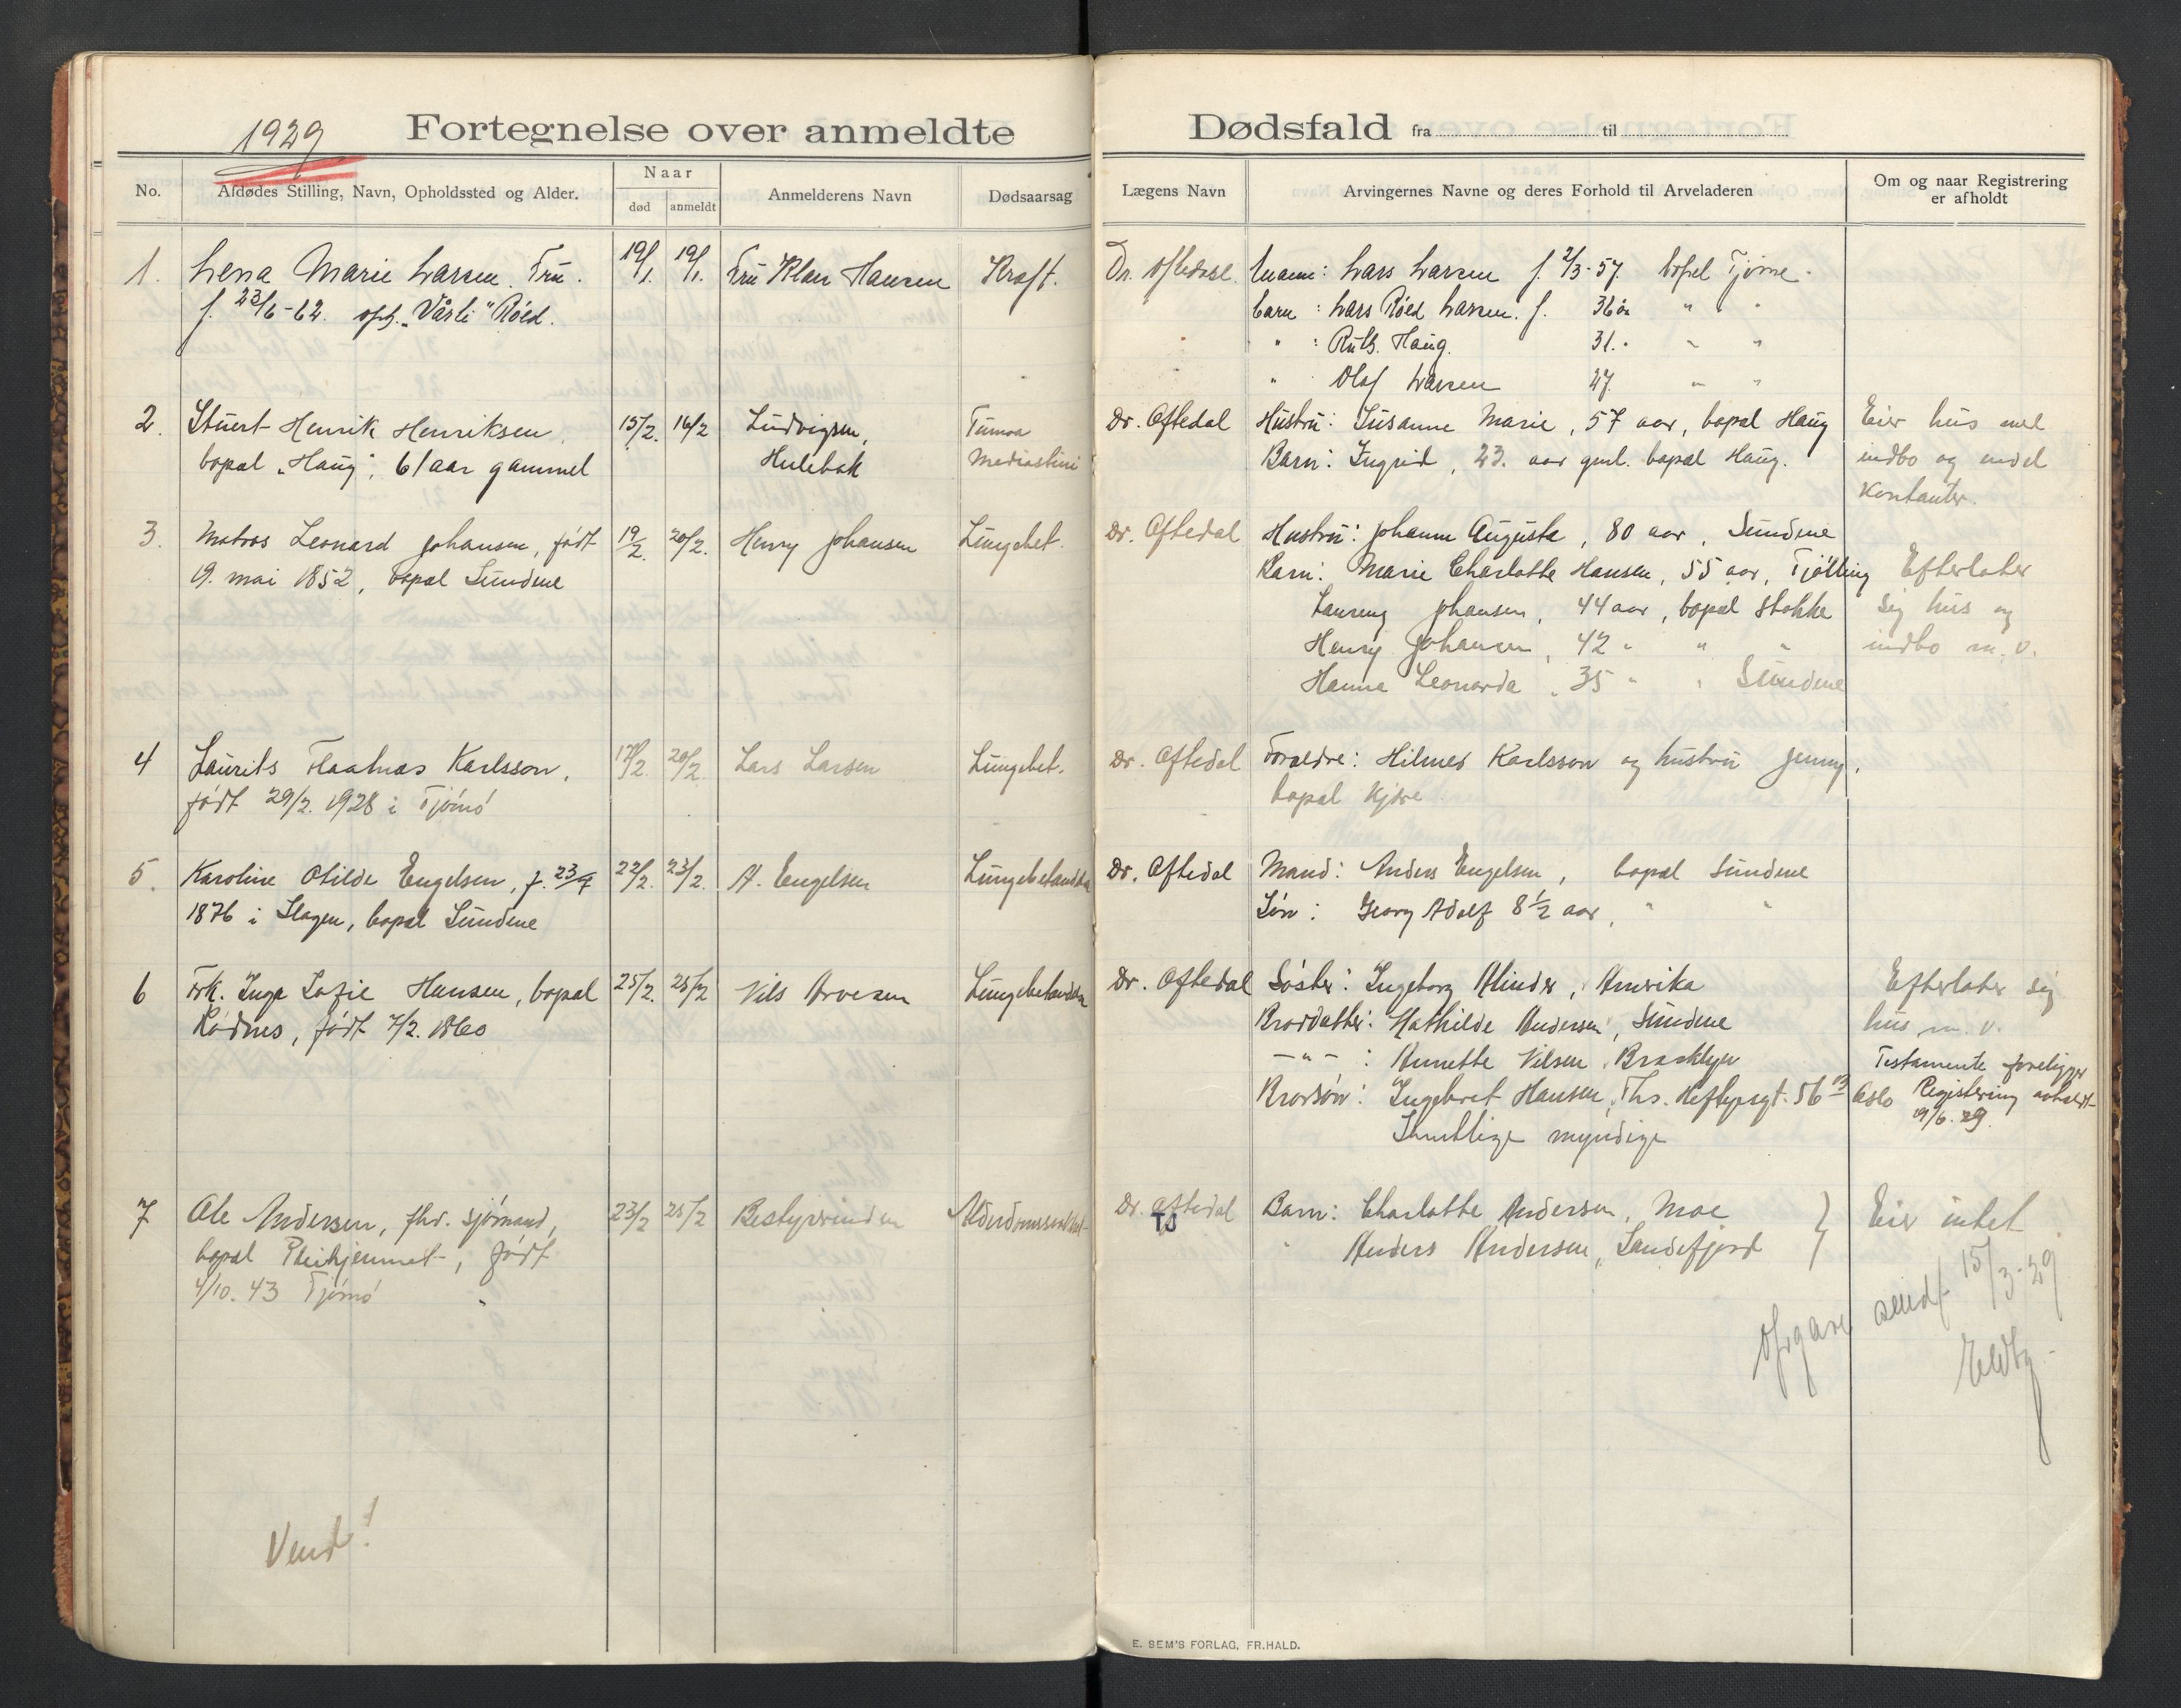 1929
Fortegnelse over anmeldte Dødsfald fra til
No.
Afdødes Stilling, Navn, Opholdssted og Alder.
Naar
død
anmeldt
Anmelderens Navn
Dødsaarsag
Lægens Navn
Arvingernes Navne og deres Forhold til Arveladeren
Om og naar Registrering
er afholdt
1. Lena Marie Larsen. Fru.
f. 23/6-62. oph. "Vårli" Røed.
19/1. 19/1.
Fru Klar Hansen
Kræft.
Dr. Oftedal.
Mann: Lars Larsen f. 2/3-57. bopel Tjøme.
barn: Lars Røed Larsen. f. 36 år " "
" : Ruth Haug. 31. " " "
" Olaf Larsen 27. " "
2. Stuert Henrik Henriksen,
bopæl "Haug", 61 aar gammel
15/2. 16/2
Ludvigsen,
Hulebak
Tumor
Mediastini
Dr. Oftedal
Hustru: Susanne Marie, 57 aar, bopæl Haug
Barn: Ingrid, 23. aar gml. bopæl Haug.
Eier hus med
indbo og endel
kontanter.
3. Matros Leonard Johansen, født
19. mai 1852, bopæl Sundene
19/2. 20/2.
Henry Johansen
Lungebet.
Dr. Oftedal
Hustru: Johanne Auguste, 80 aar, Sundene
Barn: Marie Charlotte Hansen, 55 aar, Tjølling
Laurenz Johansen, 44 aar, bopæl Stokke
Henry Johansen, 42 " " "
Hanna Leonarda, 35 " " Sundene
Efterlater
sig hus og
indbo m. v.
4 Laurits Flaatnes Karlsson,
født 29/2. 1928 i Tjømø
17/2. 20/2
Lars Larsen
Lungebet.
Dr. Oftedal
Foreldre: Hilmer Karlsson og hustru Jenny,
bopæl Kjøre
5. Karoline Otilde Engelsen, f. 23/9
1876 i Slagen, bopæl Sundene
22/2. 23/2.
A. Engelsen
Lungebetændelse
Dr. Oftedal
Mand: Anders Engelsen, bopæl Sundene
Søn: Georg Adolf 8 1/2 aar, " "
6 Frk. Inga Sofie Hansen, bopæl
Rødnes, født 7/2. 1860
25/2. 25/2
Nils Arvesen
Lungebetændelse
Dr. Oftedal
Søster: Ingeborg Alinder, Amerika
Brordatter: Mathilde Andersen, Sundene
-"- : Annette Nilsen, Brooklyn
Brorsøn: Ingebret Hansen, Ths. Heftyesgt. 56 Oslo
Samtlige myndige
Efterlater sig
hus m. v.
Testamente foreligger
Registrering avholdt
19/6. 29.
7 Ole Andersen, fhv. sjømand,
bopæl Pleihjemmet, født
4/10. 43 Tjømø
23/2 25/2
Bestyrerinden
Alderdomssvakhet
Dr. Oftedal
TJ
Barn: Charlotte Andersen, Moe
" Anders Andersen, Sandefjord
Eier intet.
Opgave sendt 15/3-29
Vend!
E. SEM'S FORLAG, FR.HALD.